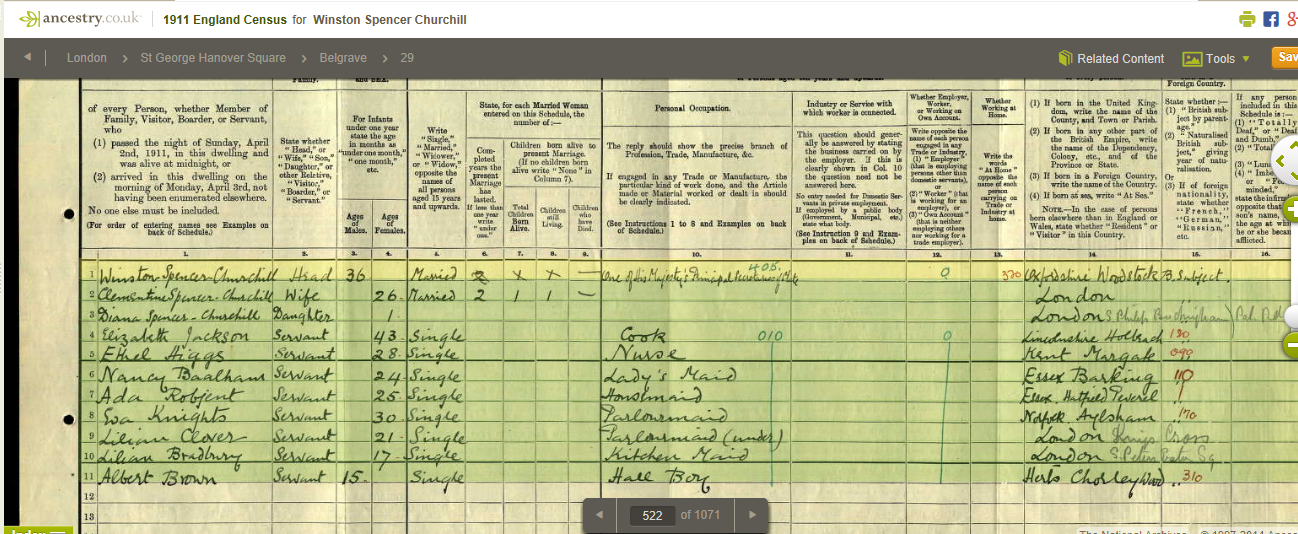 ancestry.co.uk 1911 England Census for Winston Spencer Churchill
London > St George Hanover Square > Belgrave > 29 Related Content Tools Sav
of every Person, whether Member of
Family, Visitor, Boarder, or Servant,
who
(1) passed the night of Sunday, April
2nd, 1911, in this dwelling and
was alive at midnight, or
(2) arrived in this dwelling on the
morning of Monday, April 3rd, not
having been enumerated elsewhere.
No one else must be included.
(For order of entering names see Examples on
back of Schedule.)
State whether
"Head," or
"Wife," "Son,"
"Daughter," or
other Relative,
"Visitor,"
"Boarder," or
"Servant."
For Infants
under one year
state the age
in months as
"under one month,"
"one month,"
etc.
Ages
of
Males.
Ages
of
Females.
Write
"Single,"
"Married,"
"Widower,"
or "Widow,"
opposite the
names of
all persons
aged 15 years
and upwards.
State, for each Married Woman
entered on this Schedule, the
number of:—
Completed
years the
present
Marriage
has
lasted.
If less than
one year
write
"under
one."
Children born alive to
present Marriage.
(If no children
born alive write "None" in
Column 7).
Total
Children
Born
Alive.
Children
still
Living.
Children
who
have
Died.
Personal Occupation.
The reply should show the precise branch of
Profession, Trade, Manufacture, &c.
If engaged in any Trade or Manufacture, the
particular kind of work done, and the Article
made or Material worked or dealt in should
be clearly indicated.
(See Instructions 1 to 8 and Examples on back
of Schedule.)
Industry or Service with
which worker is connected.
This question should generally
be answered by stating
the business carried on by
the employer. If this is
clearly shown in Col. 10
the question need not be
answered here.
No entry needed for Domestic Servants
in private employment.
If employed by a public body
(Government, Municipal, etc.)
state what body.
(See Instruction 9 and Examples
on back of Schedule.)
Whether Employer,
Worker,
or Working on
Own Account.
Write opposite the
name of each person
engaged in any
Trade or Industry,
(1) "Employer"
(that is employing
persons other than
domestic servants),
or
(2) "Worker" (that
is working for an
employer), or
(3) "Own Account"
(that is neither
employing others
nor working for a
trade employer).
Whether
Working at
Home.
Write the
words
"At Home"
opposite the
name of each
person
carrying on
Trade or
Industry at
home.
(1) If born in the United Kingdom,
write the name of the
County, and Town or Parish.
(2) If born in any other part of
the British Empire, write
the name of the Dependency,
Colony, etc., and of the
Province or State.
(3) If born in a Foreign Country,
write the name of the Country.
(4) If born at sea, write "At Sea."
NOTE.—In the case of persons
born elsewhere than in England or
Wales, state whether "Resident" or
"Visitor" in this Country.
Foreign Country.
State whether:—
(1) "British subject
by parentage."
(2) "Naturalised
British subject,"
giving
year of naturalisation.
Or
(3) If of foreign
nationality,
state whether
"French,"
"German,"
"Russian,"
etc.
If any person
included in this
Schedule is:—
(1) "Totally
Deaf," or "Deaf
and Dumb,"
state the infirm
opposite that
son's name,
the age at wh
he or she became
afflicted.
1. 2. 3. 4. 5. 6. 7. 8. 9. 10. 11. 12. 13. 14. 15. 16.
1 Winston Spencer-Churchill Head 36 Married 2 x x — One of His Majesty's Principal Secretaries of State 405. 0 370 Oxfordshire Woodstock B. Subject.
2 Clementine Spencer-Churchill Wife 26 Married 2 1 1 — London
3 Diana Spencer-Churchill Daughter 1 London
4 Elizabeth Jackson Servant 43 Single Cook 010 0 Lincolnshire Holbeach 130
5 Ethel Higgs Servant 28 Single Nurse Kent Margate 099
6 Nancy Baalham Servant 24 Single Lady's Maid Essex Barking 110
7 Ada Robjent Servant 25 Single Housemaid Essex, Hatfield Peverel
8 Eva Knights Servant 30 Single Parlourmaid Norfolk Aylsham 170
9 Lilian Clover Servant 21 Single Parlourmaid (under) London Kings Cross
10 Lilian Bradbury Servant 17 Single Kitchen Maid London
11 Albert Brown Servant 15 Single Hall Boy Herts Chorleywood 310
12
13
522 of 1071